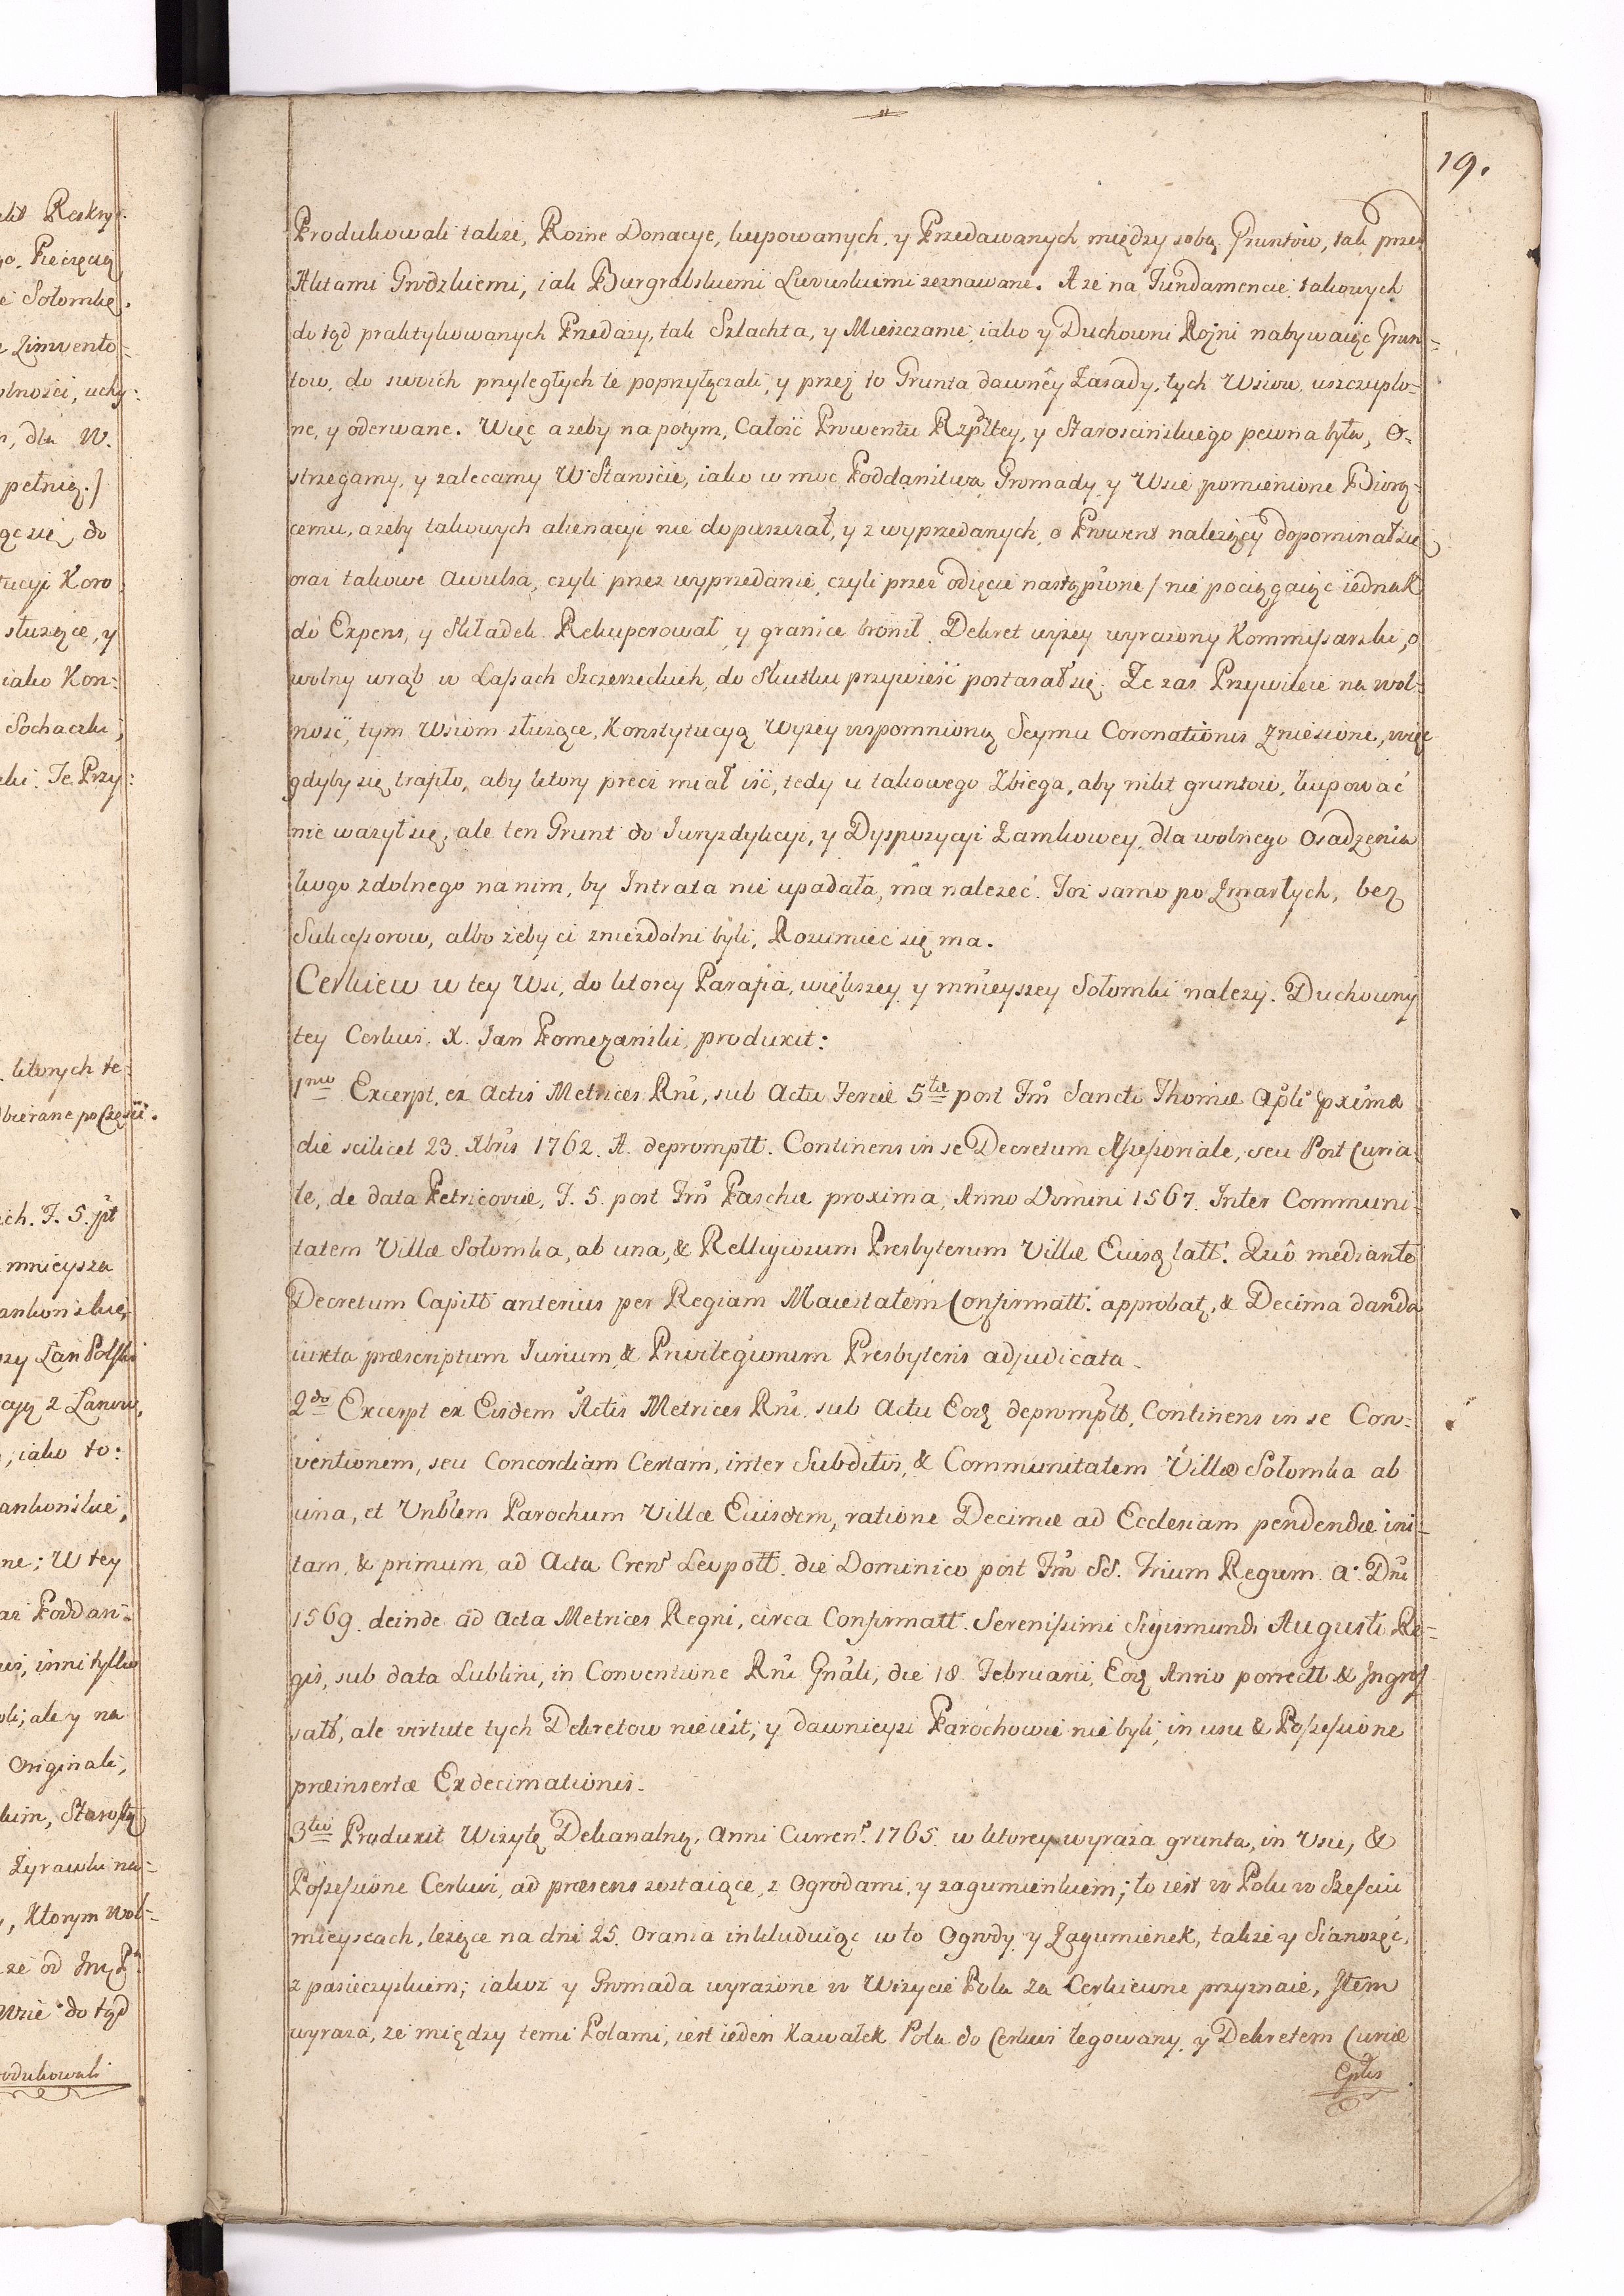 19.
Produkowali także, Rożne Donacye, kupowanych, y Przedawanych między sobą Gruntow, tak przed
Aktami Grodzkiemi, iak Burgrabskiemi Lwowskiemi zeznawane. A że na Fundamencie takowych
do tąd praktykowanych Przedaży, tak Szlachta, y Mieszczanie, iako y Duchowni Rożni nabywaiąc Grun=
tow, do swoich przyległych te poprzyłączali, y przez to Grunta dawney Zasady, tych Wsiow uszczuplo=
ne, y oderwane. Więc ażeby na potym, Całość Prowentu Rzpltey, y Starościńskiego pewna była, O=
strzegamy, y zalecamy W Staroście, iako w moc Poddaństwa Gromady y Wsie pomienione Biorą=
cemu, ażeby takowych alienacyi nie dopuszczał, y z wyprzedanych, o Prowent należący dopominał się
oraz takowe Awulsa, czyli przez wyprzedanie, czyli przez odięcie nastąpione / nie pociągaiąc iednak
do Expens, y Składek Rekuperował y granice bronił. Dekret wyżey wyrażony Kommissarski, o
wolny wrąb w Lassach Szczerzeckich, do Skutku przywieść postarał się. Że zas Przywileie na wol=
ność, tym Wsiom służące, Konstytucyą Wyżey wspomnioną Seymu Coronationis Zniesione, więc
gdyby się trafiło, aby ktory precz miał iść, tedy u takowego Zbiega, aby nikt gruntow, kupować
nie ważył się, ale ten Grunt do Iuryzdykcyi, y Dyspozycyi Zamkowey, dla wolnego Osadzenia
kogo zdolnego na nim, by Intrata nie upadała, ma należeć. Toż samo po Zmarłych, bez
Sukcessorow, albo żeby ci zniezdolni byli, Rozumieć się ma.
Cerkiew w tey Wsi, do ktorey Parafia, większey y mnieyszey Sołomki należy. Duchowny
tey Cerkwi. X. Ian Pomezański, produxit:
1mo Excerpt. ex Actis Metrices Rni, sub Actu Feriæ 5tæ post Fm Sancti Thomæ Apli pxima
die scilicet 23. Xbris 1762. A. depromptt. Continens in se Decretum Assessoriale, seu Post Curia=
le, de data Petricoviæ, F. 5. post Fm Paschæ proxima, Anno Domini 1567. Inter Communi=
tatem Villæ Sołomka, ab una, & Relligiosum Presbyterum Villæ Eiusq latt. Quô mediante
Decretum Capitt anterius per Regiam Maiestatem Confirmatt. approbat, & Decima danda
iuxta præscriptum Iurium, & Privilegiorum Presbyteris adjudicata.
2do Excerpt ex Eisdem Actis Metrices Rni. sub Actu Eoq depromptt, Continens in se Con=
ventionem, seu Concordiam Certam, inter Subditos, & Communitatem Villæ Sołomka ab
una, et Vnblem Parochum Villæ Eiusdem, ratione Decimæ ad Ecclesiam pendendæ ini=
tam, & primum, ad Acta Crens Leopoll. die Dominico post Fm SS. Trium Regum A. Dni
1569. deinde ad Acta Metrices Regni, circa Confirmatt. Serenissimi Sigismundi Augusti Re=
gis, sub data Lublini, in Conventione Rni Gnali, die 18 Februarii, Eoq Anno porrectt & Ingros
satt, ale virtute tych Dekretow nie iest, y dawnieysi Parochowie nie byli, in usu & Possessione
præinsertæ Exdecimationis.
3tio Produxit Wizytę Dekanalną, Anni Currens. 1765. w ktorey wyraża grunta, in Vsu, &
Possessione Cerkwi, ad præsens zostaiące, z Ogrodami, y zagumienkiem; to iest w Polu w Sześciu
mieyscach, leżące na dni 25. Orania inkluduiąc w to Ogrody y Zagumienek, także y Sianożęć,
z pasieczyskiem; iakoż y Gromada wyrażone w Wizycie Pola za Cerkiewne przyznaie, Item
wyraża, że między temi Polami, iest ieden Kawałek Pola do Cerkwi legowany, y Dekretem Curiæ
Eplis